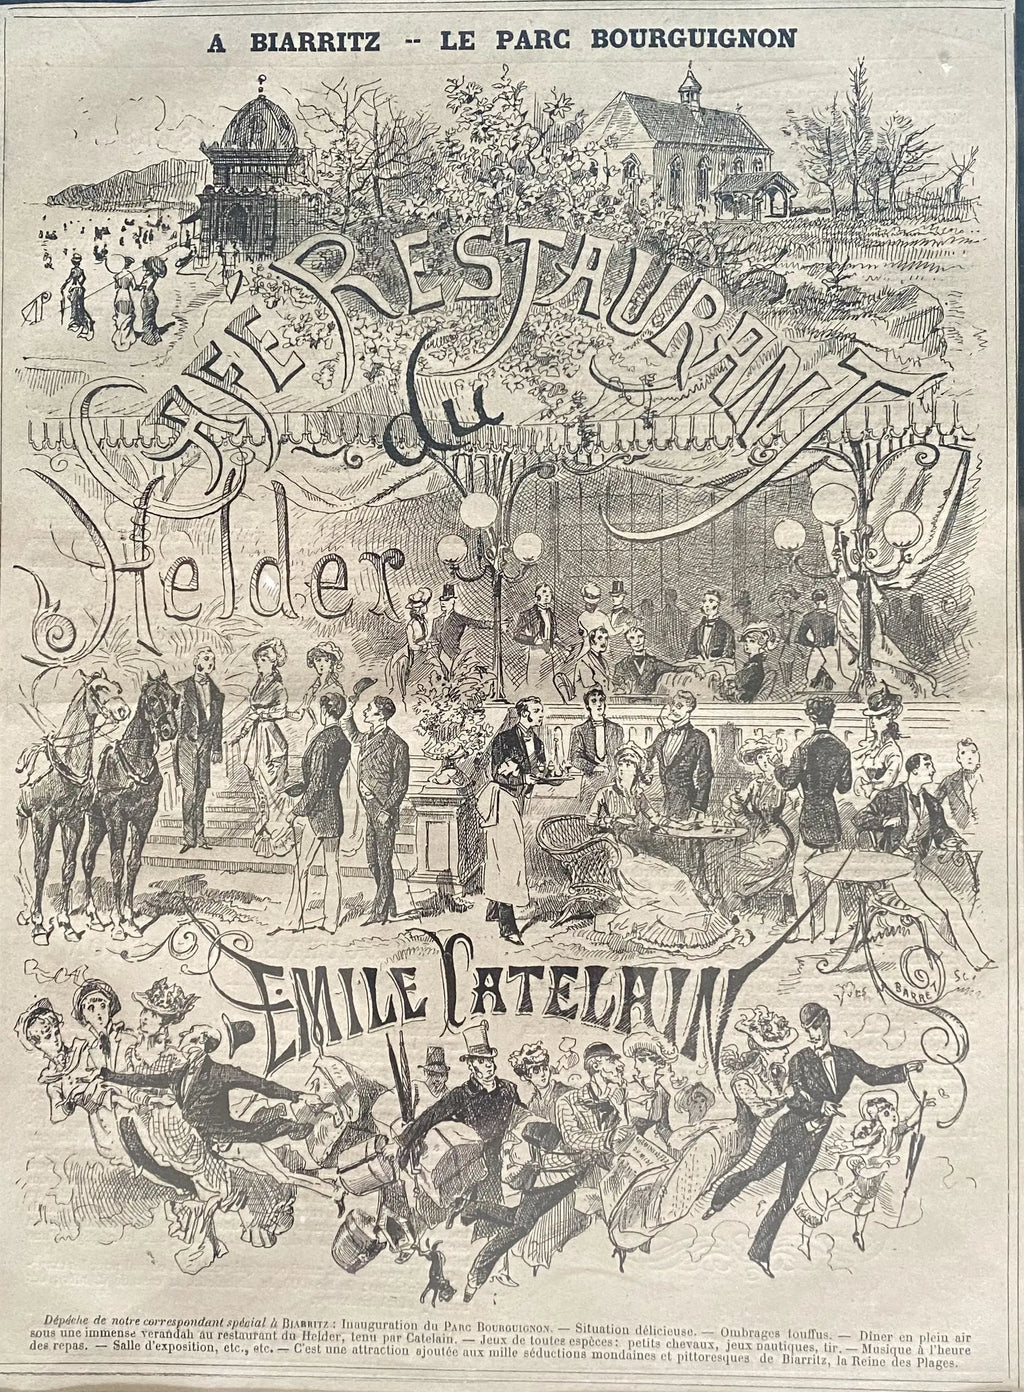 A BIARRITZ -- LE PARC BOURGUIGNON
CAFE RESTAURANT
du
Helder
EMILE CATELAIN
YVES & BARRET SC.
Dépêche de notre correspondant spécial à BIARRITZ : Inauguration du PARC BOURGUIGNON. — Situation délicieuse. — Ombrages touffus. — Dîner en plein air
sous une immense verandah au restaurant du Helder, tenu par Catelain. — Jeux de toutes espèces: petits chevaux, jeux nautiques, tir. — Musique à l'heure
des repas. — Salle d'exposition, etc., etc. — C'est une attraction ajoutée aux mille séductions mondaines et pittoresques de Biarritz, la Reine des Plages.